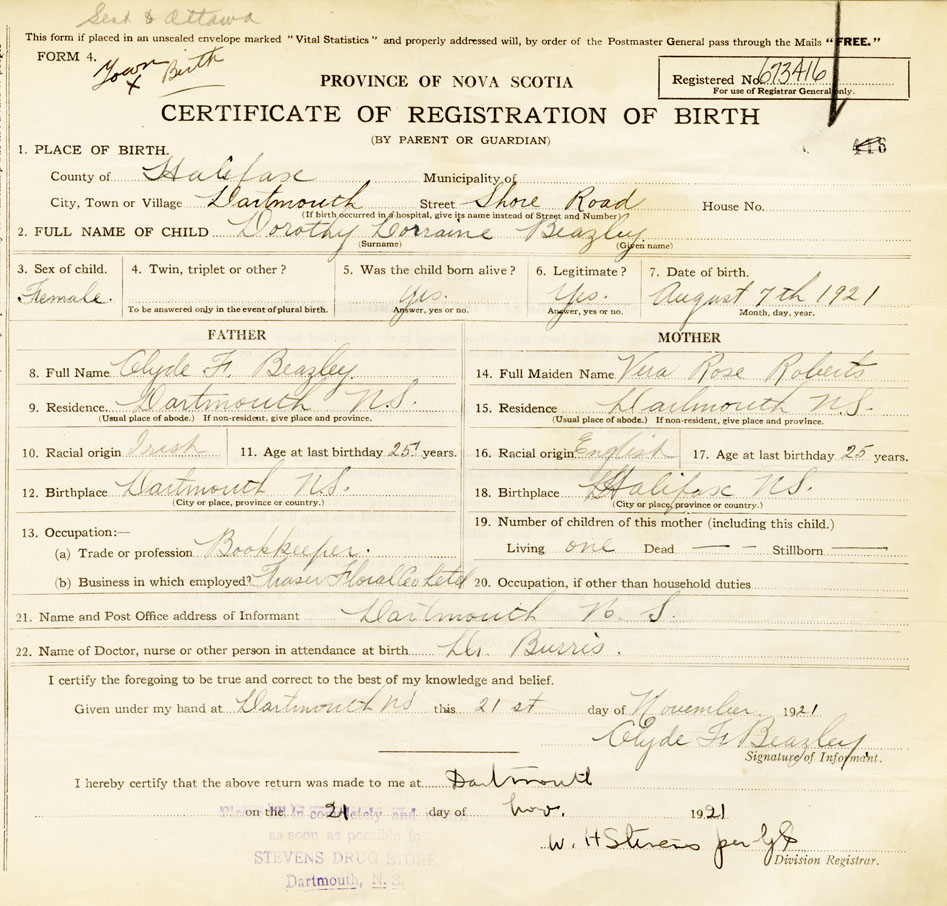 Sent to Ottawa
This form if placed in an unsealed envelope marked "Vital Statistics" and properly addressed will, by order of the Postmaster General pass through the Mails "FREE."
FORM 4.
Town Birth
X
PROVINCE OF NOVA SCOTIA
Registered No. 673416
For use of Registrar General only.
CERTIFICATE OF REGISTRATION OF BIRTH
(BY PARENT OR GUARDIAN)
1. PLACE OF BIRTH.
County of Halifax Municipality of
City, Town or Village Dartmouth Street Shore Road House No.
(If birth occurred in a hospital, give its name instead of Street and Number)
2. FULL NAME OF CHILD Dorothy Lorraine Beazley
(Surname) (Given name)
3. Sex of child. 4. Twin, triplet or other? 5. Was the child born alive? 6. Legitimate? 7. Date of birth.
Female. Yes. Yes. August 7th 1921
To be answered only in the event of plural birth. Answer, yes or no. Answer, yes or no. Month, day, year.
FATHER MOTHER
8. Full Name Clyde F. Beazley 14. Full Maiden Name Vera Rose Roberts
9. Residence. Dartmouth N.S. 15. Residence Dartmouth N.S.
(Usual place of abode.) If non-resident, give place and province. (Usual place of abode.) If non-resident, give place and province.
10. Racial origin Irish 11. Age at last birthday 25 years. 16. Racial origin English 17. Age at last birthday 25 years.
12. Birthplace Dartmouth N.S. 18. Birthplace Halifax N.S.
(City or place, province or country.) (City or place, province or country.)
13. Occupation:— 19. Number of children of this mother (including this child.)
(a) Trade or profession Bookkeeper. Living one Dead — — Stillborn —
(b) Business in which employed? Fraser Floral Co Ltd 20. Occupation, if other than household duties
21. Name and Post Office address of Informant Dartmouth N. S.
22. Name of Doctor, nurse or other person in attendance at birth Dr. Burris.
I certify the foregoing to be true and correct to the best of my knowledge and belief.
Given under my hand at Dartmouth NS this 21 st day of November 1921
Clyde F. Beazley.
Signature of Informant.
I hereby certify that the above return was made to me at Dartmouth
on the 21 day of Nov. 1921
Please in completely and
as soon as possible to
W. H Stevens per
Division Registrar.
STEVENS DRUG STORE
Dartmouth, N. S.